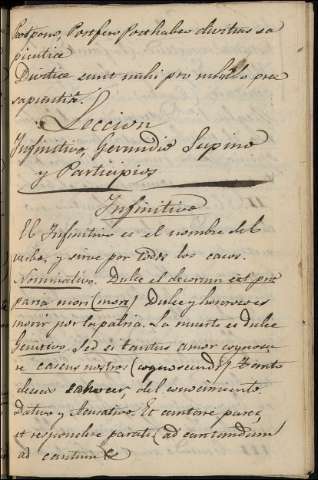 Postpono, Postfero Posthabeo divitias sa
pientiæ
Divitiæ sunt mihi pro nihilo præ
sapientia.
Leccion
Infinitivo, Gerundio Supino
y Participios
Infinitivo
El Infinitivo es el nombre del
verbo, y sirve por todos los casos.
Nominativo. Dulce el decorum est pro
patria mori (mors) Dulce y honroso es
morir por la patria. La muerte es dulce
Genitivo. Sed si tantus amor cognosce
re casus nostros (cognoscendi) Tanto
deseo saber, del conocimiento.
Dativo y Acusativo. Et cantare pares,
et respondere parati (ad cantandum
ad cantum &